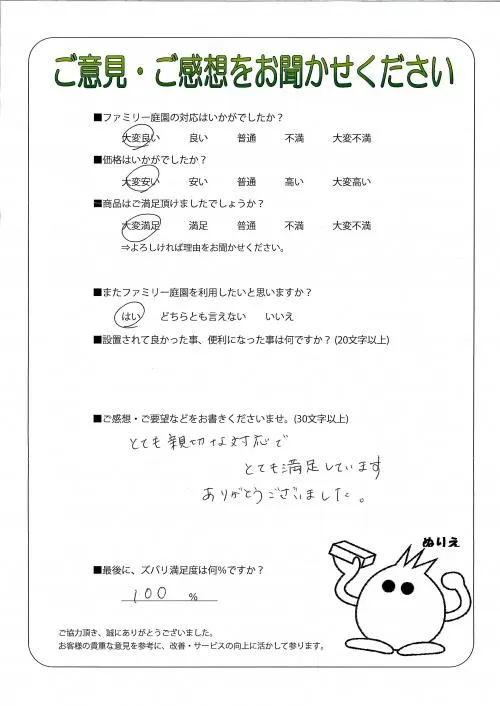 ご意見・ご感想をお聞かせください
■ファミリー庭園の対応はいかがでしたか？
大変良い 良い 普通 不満 大変不満
■価格はいかがでしたか？
大変安い 安い 普通 高い 大変高い
■商品はご満足頂けましたでしょうか？
大変満足 満足 普通 不満 大変不満
⇒よろしければ理由をお聞かせください。
■またファミリー庭園を利用したいと思いますか？
はい どちらとも言えない いいえ
■設置されて良かった事、便利になった事は何ですか？(20文字以上)
■ご感想・ご要望などをお書きくださいませ。(30文字以上)
とても親切な対応で
とても満足しています
ありがとうございました。
ぬりえ
■最後に、ズバリ満足度は何％ですか？
100 %
ご協力頂き、誠にありがとうございました。
お客様の貴重な意見を参考に、改善・サービスの向上に活かして参ります。